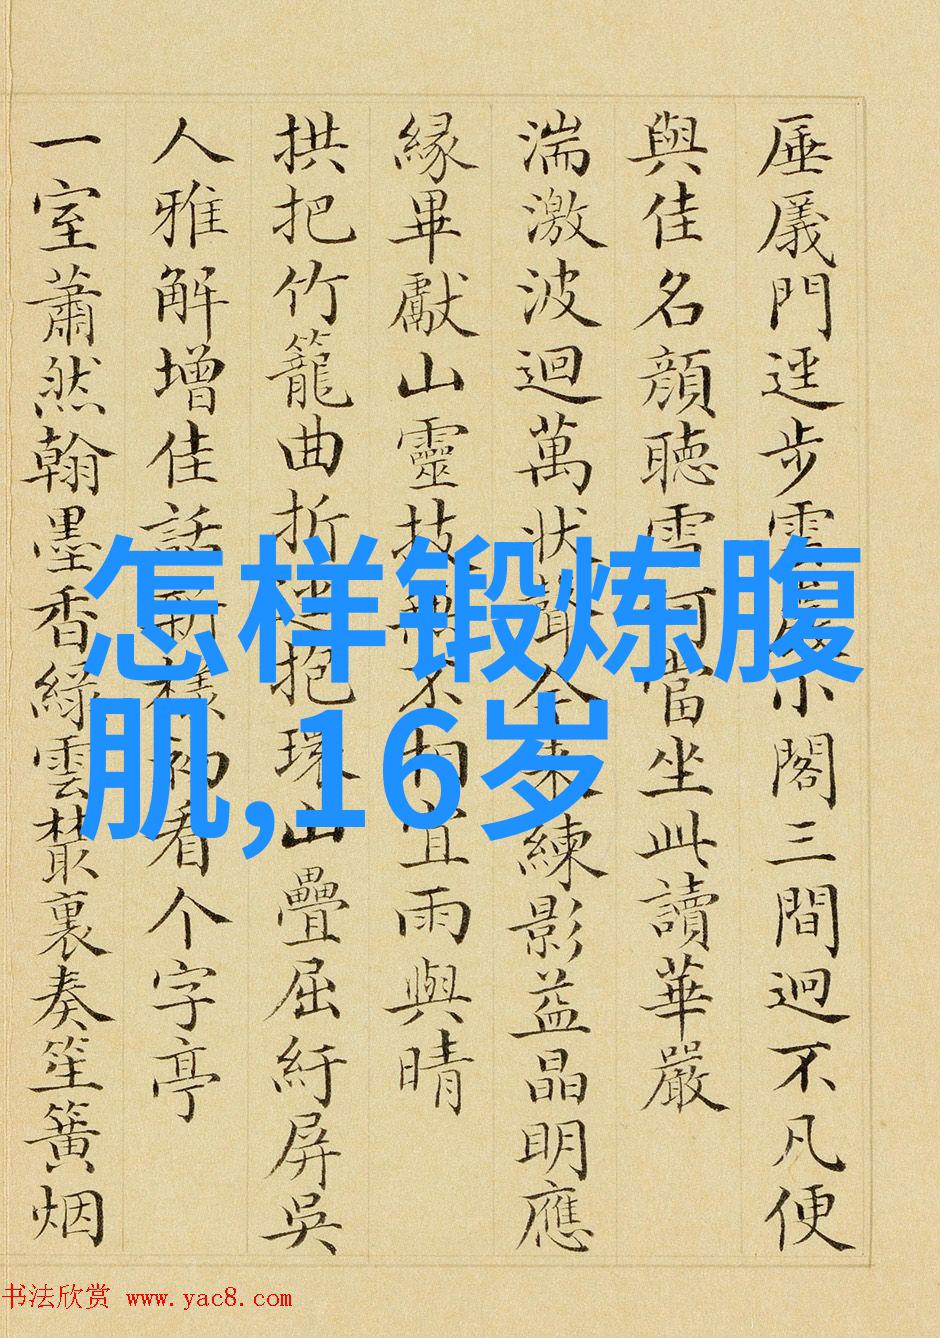 厜㕒門逕步雲小閣三間迥不凡便
與佳名顏聽雪何當坐此讀華嚴
湍激波迴萬狀聲全來練影益晶明應
緣畢獻山靈技無不相宜雨與晴
拱把竹籠曲折抱環山疊屈紆屏吳
人雅解增佳話新樣初看个字亭
一室蕭然翰墨香綠雲叢裏奏笙簧烟
怎样锻炼腹
肌,16岁
书法欣赏 www.yac8.com